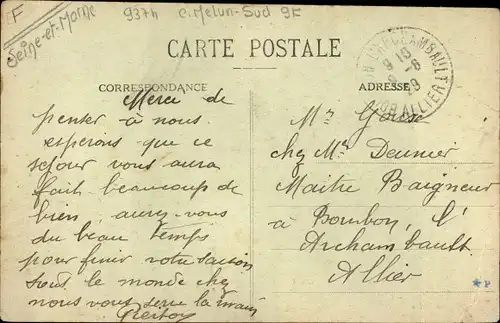 CF
Seine-et-Marne
937h c. Melun-Sud 9F
CARTE POSTALE
CORRESPONDANCE
Merci de
penser à nous
esperons que ce
sejour vous aura
fait beaucoup de
bien, aurez-vous
du beau temps
pour finir votre saison
tout le monde chez
nous vous serre la main
ADRESSE
9 10
8 -6
29
ALLIER
Mr
chez Mr Deumier
Maitre Baigneur
à Bourbon, l'
Archambault
Allier